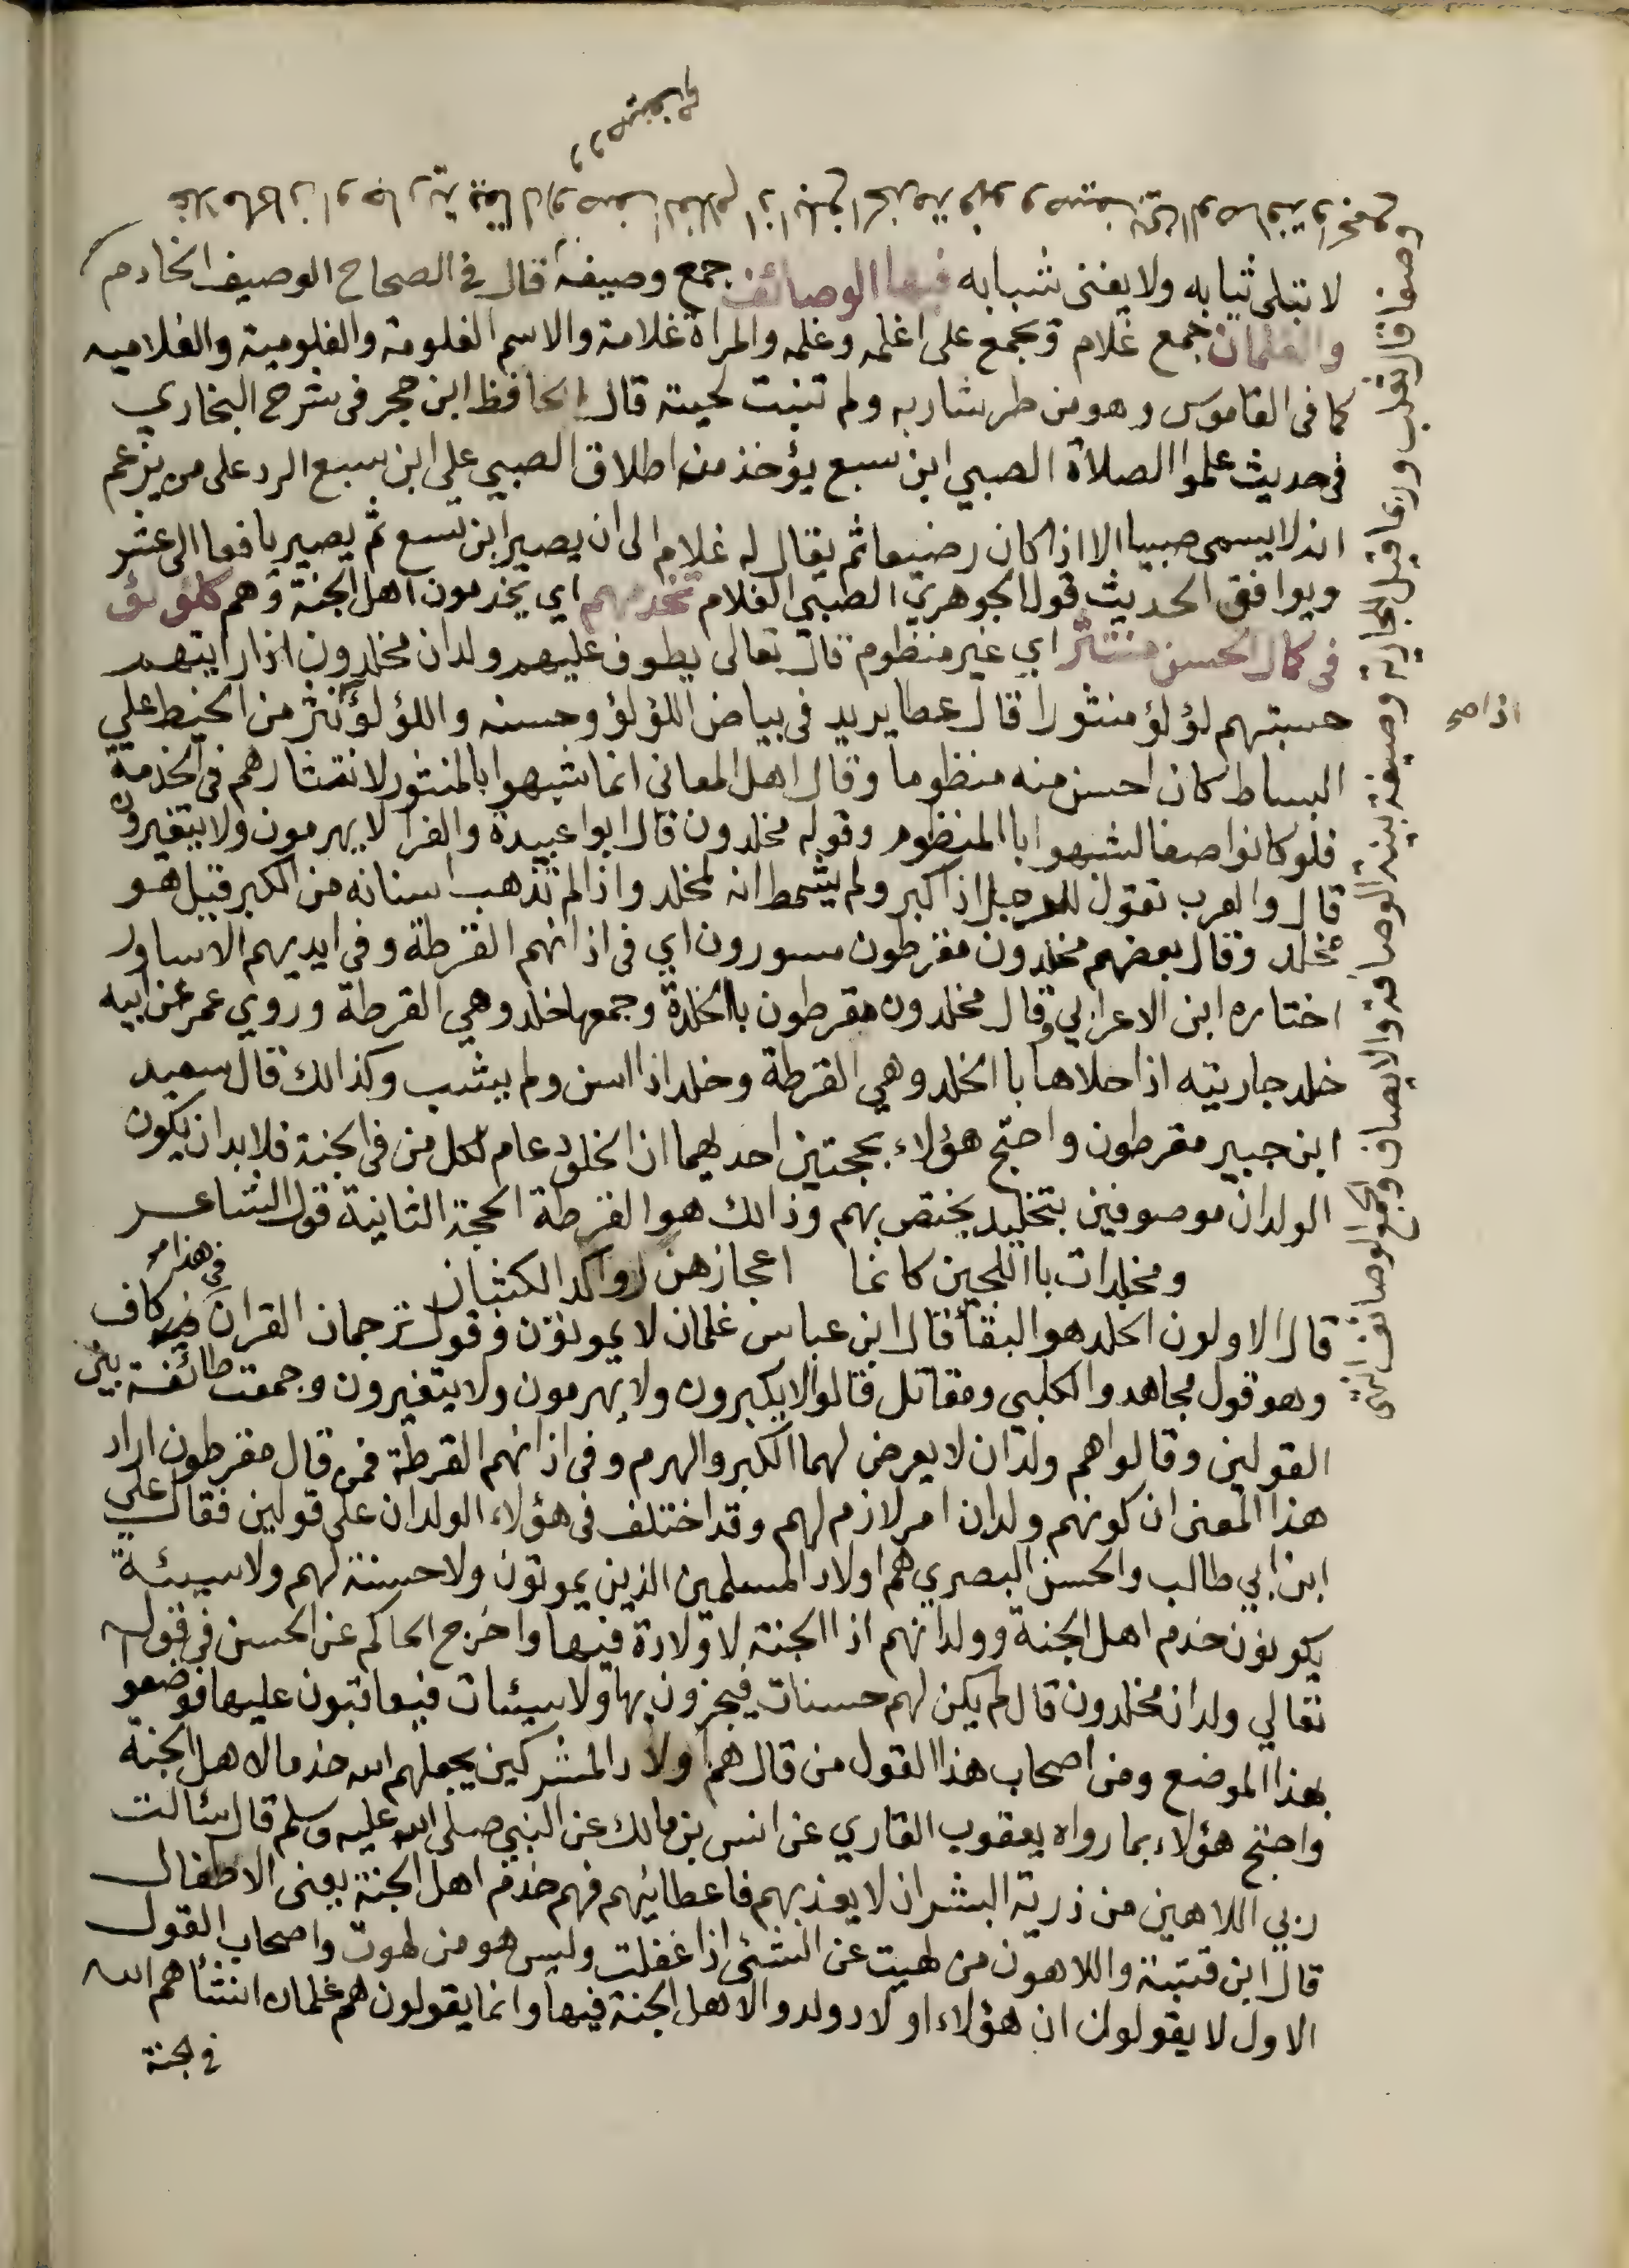 لا تبلى ثيابه ولا يفنى شبابه فيها الوصائف جمع وصيفة قال في الصحاح الوصيف الخادم
والغلمان جمع غلام وجمع على اغلمه وغلمه والمراة غلامة والاسم الغلومة والغلومية والغلاميه
كما فى القاموس وهو من طر شاربه ولم تنبت لحيته قال الحافظ ابن حجر فى شرح البخاري
فى حديث علموا الصلاة الصبي ابن سبع يؤخذ من اطلاق الصبي على ابن سبع الرد على من يزعم
انه لا يسمى صبيا الا اذا كان رضيعا ثم يقال له غلام الى ان يصير ابن تسع ثم يصير يافعا الى عشر
ويوافق الحديث قول الجوهري الصبي الغلام تخدمهم اي يخدمون اهل الجنة وهم كلؤلؤ
فى كمال الحسن منتثر اي غير منظوم قال تعالى يطوف عليهم ولدان مخلدون اذا رايتهم
حسبتهم لؤلؤ منثورا قال عطا يريد فى بياض اللؤلؤ وحسنه واللؤلؤ نثر من الخيط علي
اذا صح
البساط كان احسن منه منظوما وقال اهل المعانى انما شبهوا بالمنثور لانتشارهم فى الخدمة
فلو كانوا صفا لشبهوا باالمنظوم وقوله مخلدون قال ابوا عبيدة والفرا لا يهرمون ولا يتغيرون
قال والعرب تقول للرجل اذ اكبر ولم يشمط انه لمخلد واذا لم تذهب اسنانه من الكبر قيل هو
مخلد وقال بعضهم مخلدون مقرطون مسورون اي فى اذانهم القرطة وفى ايديهم الاساور
اختاره ابن الاعرابي وقال مخلدون مقرطون باالخلدة وجمعها خلد وهي القرطة وروي عمر عن ابيه
خلد جاريته اذا حلاها باالخلد وهي القرطة وخلد اذا اسن ولم يشب وكذالك قال سعيد
ابن جبير مقرطون واحتج هؤلاء بحجتين احدهما ان الخلود عام لكل من فى الجنة فلا بد ان يكون
الولدان موصوفين بتخليد يختص بهم وذالك هو القرطة الحجة الثانية قول الشاعر
ومخلدات باللجين كانما اعجازهن رواكد الكثبان
قال الاولون الخلد هو البقا قال ابن عباس غلمان لا يموتون وقول ترجمان القران فى هذا كاف
وهو قول مجاهد والكلبى ومقاتل قالوا لا يكبرون ولا يهرمون ولا يتغيرون وجمعت طائفة بين
القولين وقالوا هم ولدان لا يعرض لهما الكبر والهرم وفى اذانهم القرطة فمن قال مقرطون اراد
هذا المعنى ان كونهم ولدان امر لازم لهم وقد اختلف فى هؤلاء الولدان على قولين فقال علي
ابن ابي طالب والحسن البصري هم اولاد المسلمين الذين يموتون ولا حسنة لهم ولا سيئة
يكونون خدم اهل الجنة وولدانهم اذا الجنة لا ولادة فيها واخرج الحاكم عن الحسن فى قوله
تعالي ولدان مخلدون قال لم يكن لهم حسنات فيجزون بها ولا سيئات فيعاقبون عليها فوضعو
بهذا الموضع ومن اصحاب هذا القول من قال هم اولاد المشركين يجعلهم الله خدما لاهل الجنة
واحتج هؤلاء بما رواه يعقوب القاري عن انس بن مالك عن النبي صلى الله عليه وسلم قال سئالت
ربي اللاهين من ذرية البشر ان لا يعذبهم فاعطانيهم فهم خدم اهل الجنة يعنى الاطفال
قال ابن قتيبة واللاهون من لهيت عن الشئى اذا غفلت وليس هو من لهوت واصحاب القول
الاول لا يقولون ان هؤلاء اولاد ولدوا لاهل الجنة فيها وانما يقولون هم غلمان انشئاهم الله
فى الجنة
وصفا قال ثعلب وربما قيل الجارية وصيفة بينة الوصافة والايصاف وجمع الوصائف انتهى